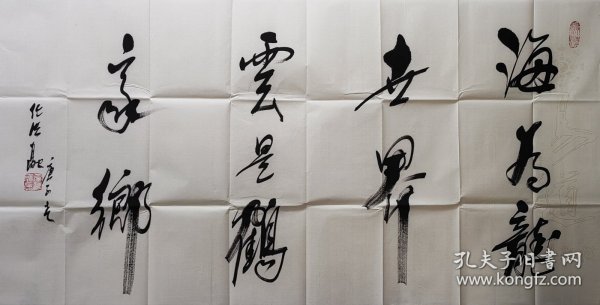 海为龍
世界
雲是鶴
家鄉
庚子
孔夫子旧书网
www.kongfz.com